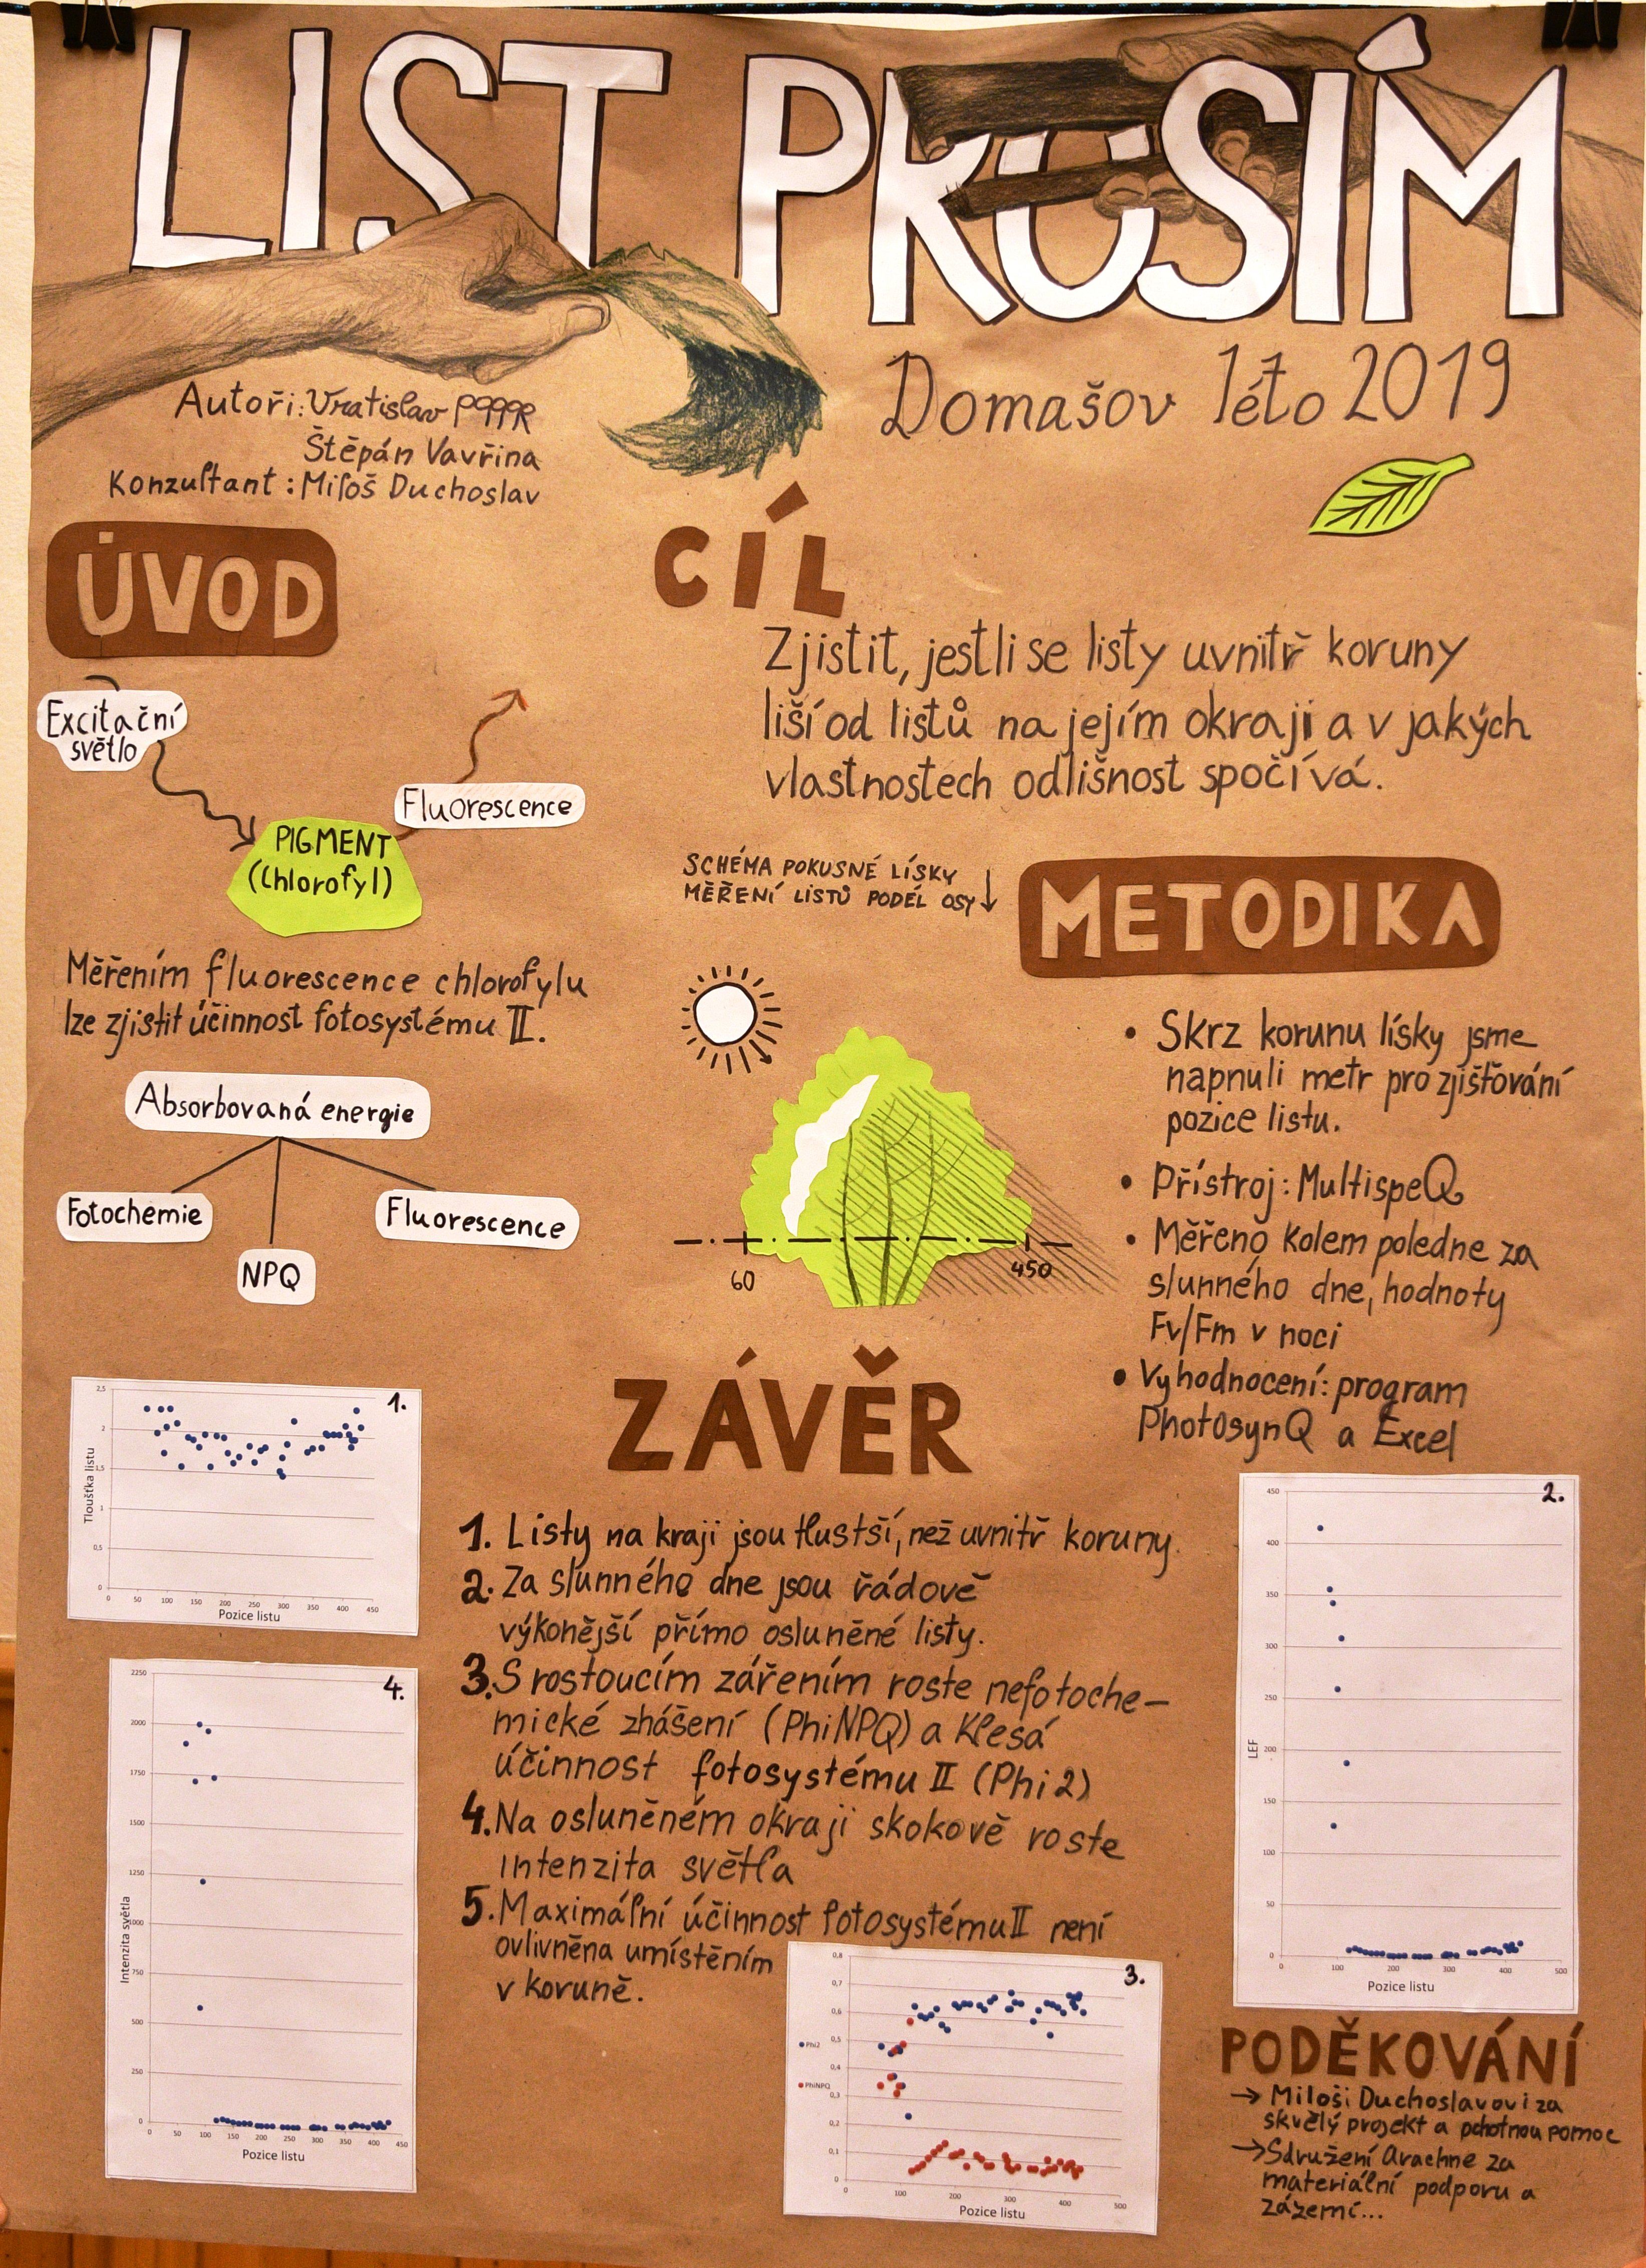 LIST PROSÍM
Domašov léto 2019
Autoři: Vratislav
Štěpán Vavřina
Konzultant: Miloš Duchoslav
ÚVOD
Excitační
světlo
Fluorescence
PIGMENT
(chlorofyl)
Měřením fluorescence chlorofylu
lze zjistit účinnost fotosystému II.
Absorbovaná energie
Fotochemie
NPQ
Fluorescence
CÍL
Zjistit, jestli se listy uvnitř koruny
liší od listů na jejím okraji a v jakých
vlastnostech odlišnost spočívá.
SCHÉMA POKUSNÉ LÍSKY
MĚŘENÍ LISTŮ PODÉL OSY ↓
60
450
METODIKA
• Skrz korunu lísky jsme
napnuli metr pro zjišťování
pozice listu.
• Přístroj: MultispeQ
• Měřeno kolem poledne za
slunného dne, hodnoty
Fv/Fm v noci
• Vyhodnocení: program
PhotosynQ a Excel
ZÁVĚR
1. Listy na kraji jsou tlustší, než uvnitř koruny.
2. Za slunného dne jsou řádově
výkonější přímo osluněné listy.
3. S rostoucím zářením roste nefotoche-
mické zhášení (PhiNPQ) a klesá
účinnost fotosystému II (Phi2)
4. Na osluněném okraji skokově roste
intenzita světla
5. Maximální účinnost fotosystému II není
ovlivněna umístěním
v koruně.
1.
Tloušťka listu
2,5
2
1,5
1
0,5
0
0 50 100 150 200 250 300 350 400 450
Pozice listu
4.
Intenzita světla
2250
2000
1750
1500
1250
1000
750
500
250
0
0 50 100 150 200 250 300 350 400 450
Pozice listu
3.
0,8
0,7
0,6
0,5
0,4
0,3
0,2
0,1
0
Phi2
PhiNPQ
0 100 200 300 400 500
Pozice listu
2.
LEF
450
400
350
300
250
200
150
100
50
0
0 100 200 300 400 500
Pozice listu
PODĚKOVÁNÍ
→ Miloši Duchoslavovi za
skvělý projekt a ochotnou pomoc
→ Sdružení Arachne za
materiální podporu a
zázemí...